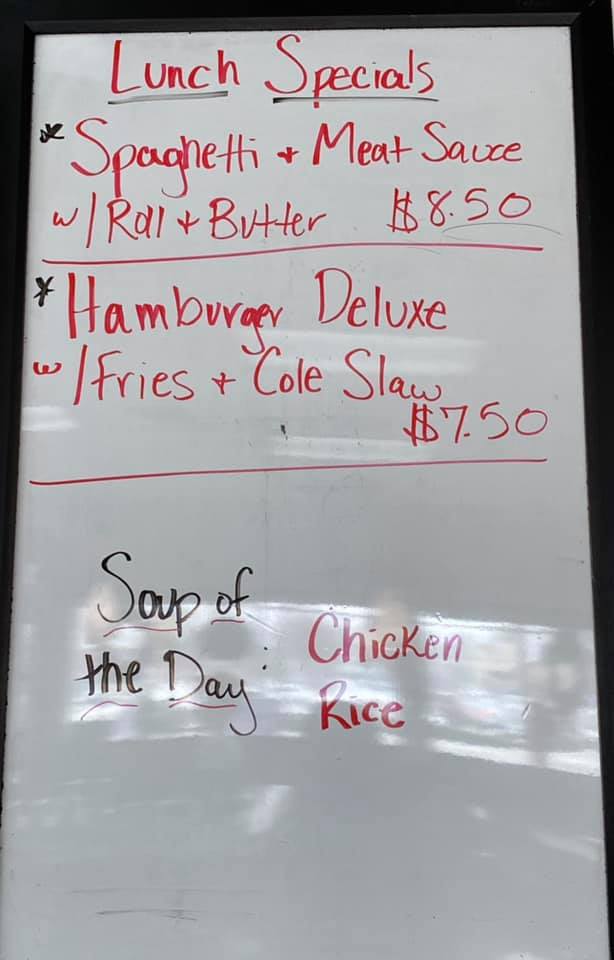 Lunch Specials
* Spaghetti + Meat Sauce
w/ Roll + Butter $8.50
* Hamburger Deluxe
w/ Fries + Cole Slaw
$7.50
Soup of
the Day:
Chicken
Rice